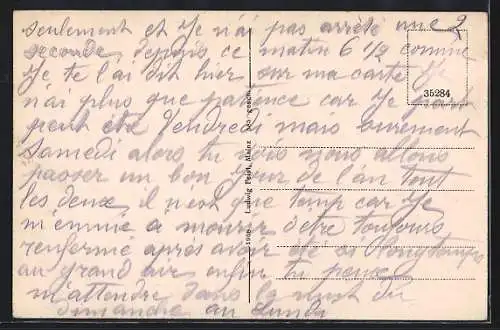 seulement et je n'ai pas arrêté une 2
seconde depuis ce matin 6 1/2 comme
je te l'ai dit hier sur ma carte Je
n'ai plus que patience car je
peut être Vendredi mais surement
Samedi alors tu vois nous allons
passer un bon jour de l'an tout
les deux il n'est que temp car je
m'ennuie a mourir d'etre toujours
renfermé après avoir été si longtemps
au grand air enfin tu peux
m'attendre dans la nuit du
dimanche au Lundi
35284
Ludwig Feist, Mainz ges. gesch.